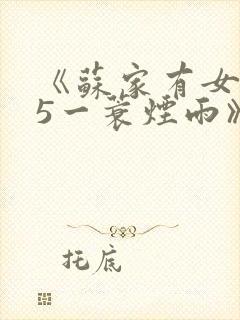 《蘇家有女
5一蓑煙雨》
托底